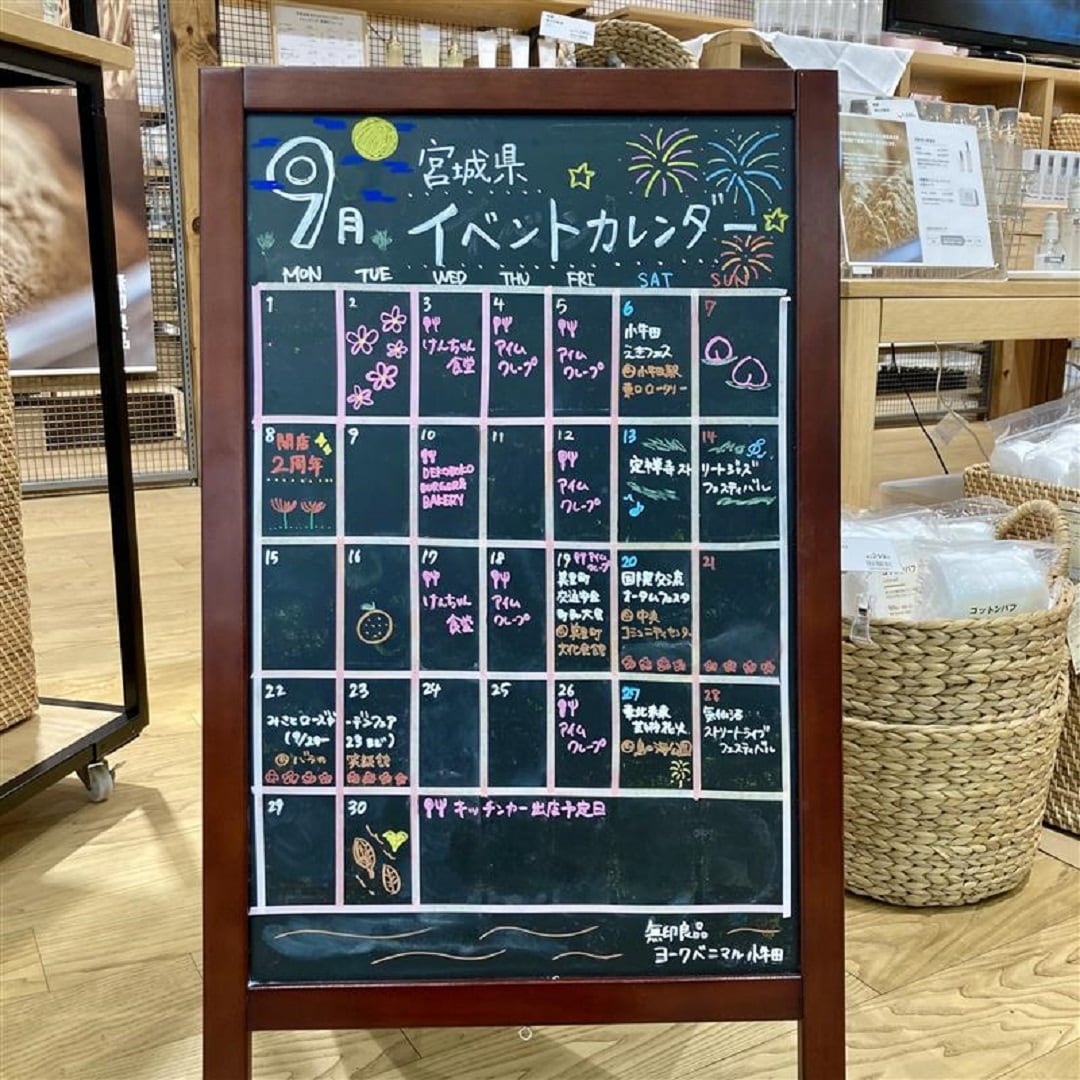 9月
宮城県
イベントカレンダー
MON TUE WED THU FRI SAT SUN
1
2
3
けんちゃん
食堂
4
アイム
クレープ
5
アイム
クレープ
6
小牛田
えきフェス
小牛田駅
東口ロータリー
7
8
開店
2周年
9
10
DEKOBOKO
BURGER&
BAKERY
11
12
アイム
クレープ
13
定禅寺スト
14
リートジャズ
フェスティバル
15
16
17
けんちゃん
食堂
18
アイム
クレープ
19 アイム
クレープ
美里町
交通安全
町民大会
美里町
文化会館
20
国際交流
オータムフェスタ
中央
コミュニティセンター
21
22
みさとローズガ
バラの
23
ーデンフェア
23日まで)
実験館
24
25
26
アイム
クレープ
27
東北未来
芸術花火
鳥の海公園
28
気仙沼
ストリートライブ
フェスティバル
29
30
キッチンカー出店予定日
無印良品
ヨークベニマル小牛田
コットンパフ